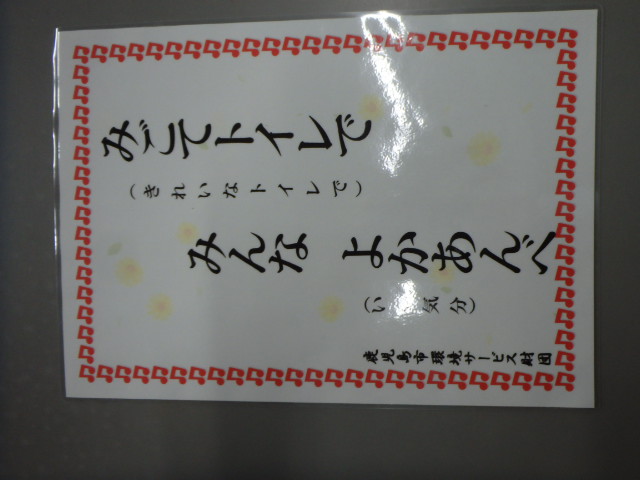 みごてトイレで
（きれいなトイレで）
みんな よかあんべ
（いい気分）
鹿児島市環境サービス財団